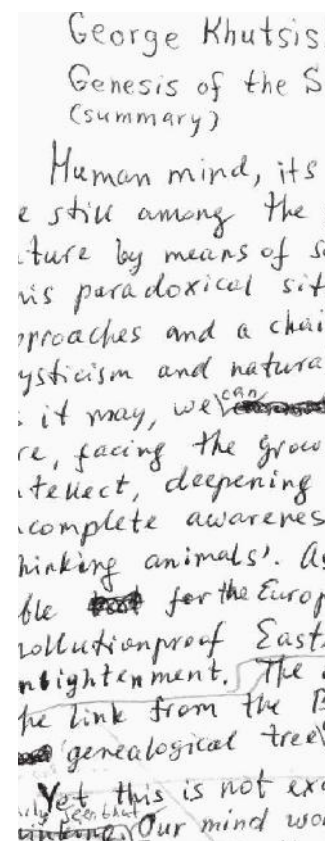 George Khutsis
Genesis of the S
(summary)
Human mind, its
e still among the
ture by means of s
his paradoxical sit
pproaches and a chai
ysticism and natura
it may, we can
re, facing the grow
ntellect, deepening
ncomplete awarenes
hinking animals'. As
ble for the Europ
pollutionproof East
nlightenment. The
he link from the B
genealogical tree
Yet this is not exa
been that
Our mind wor